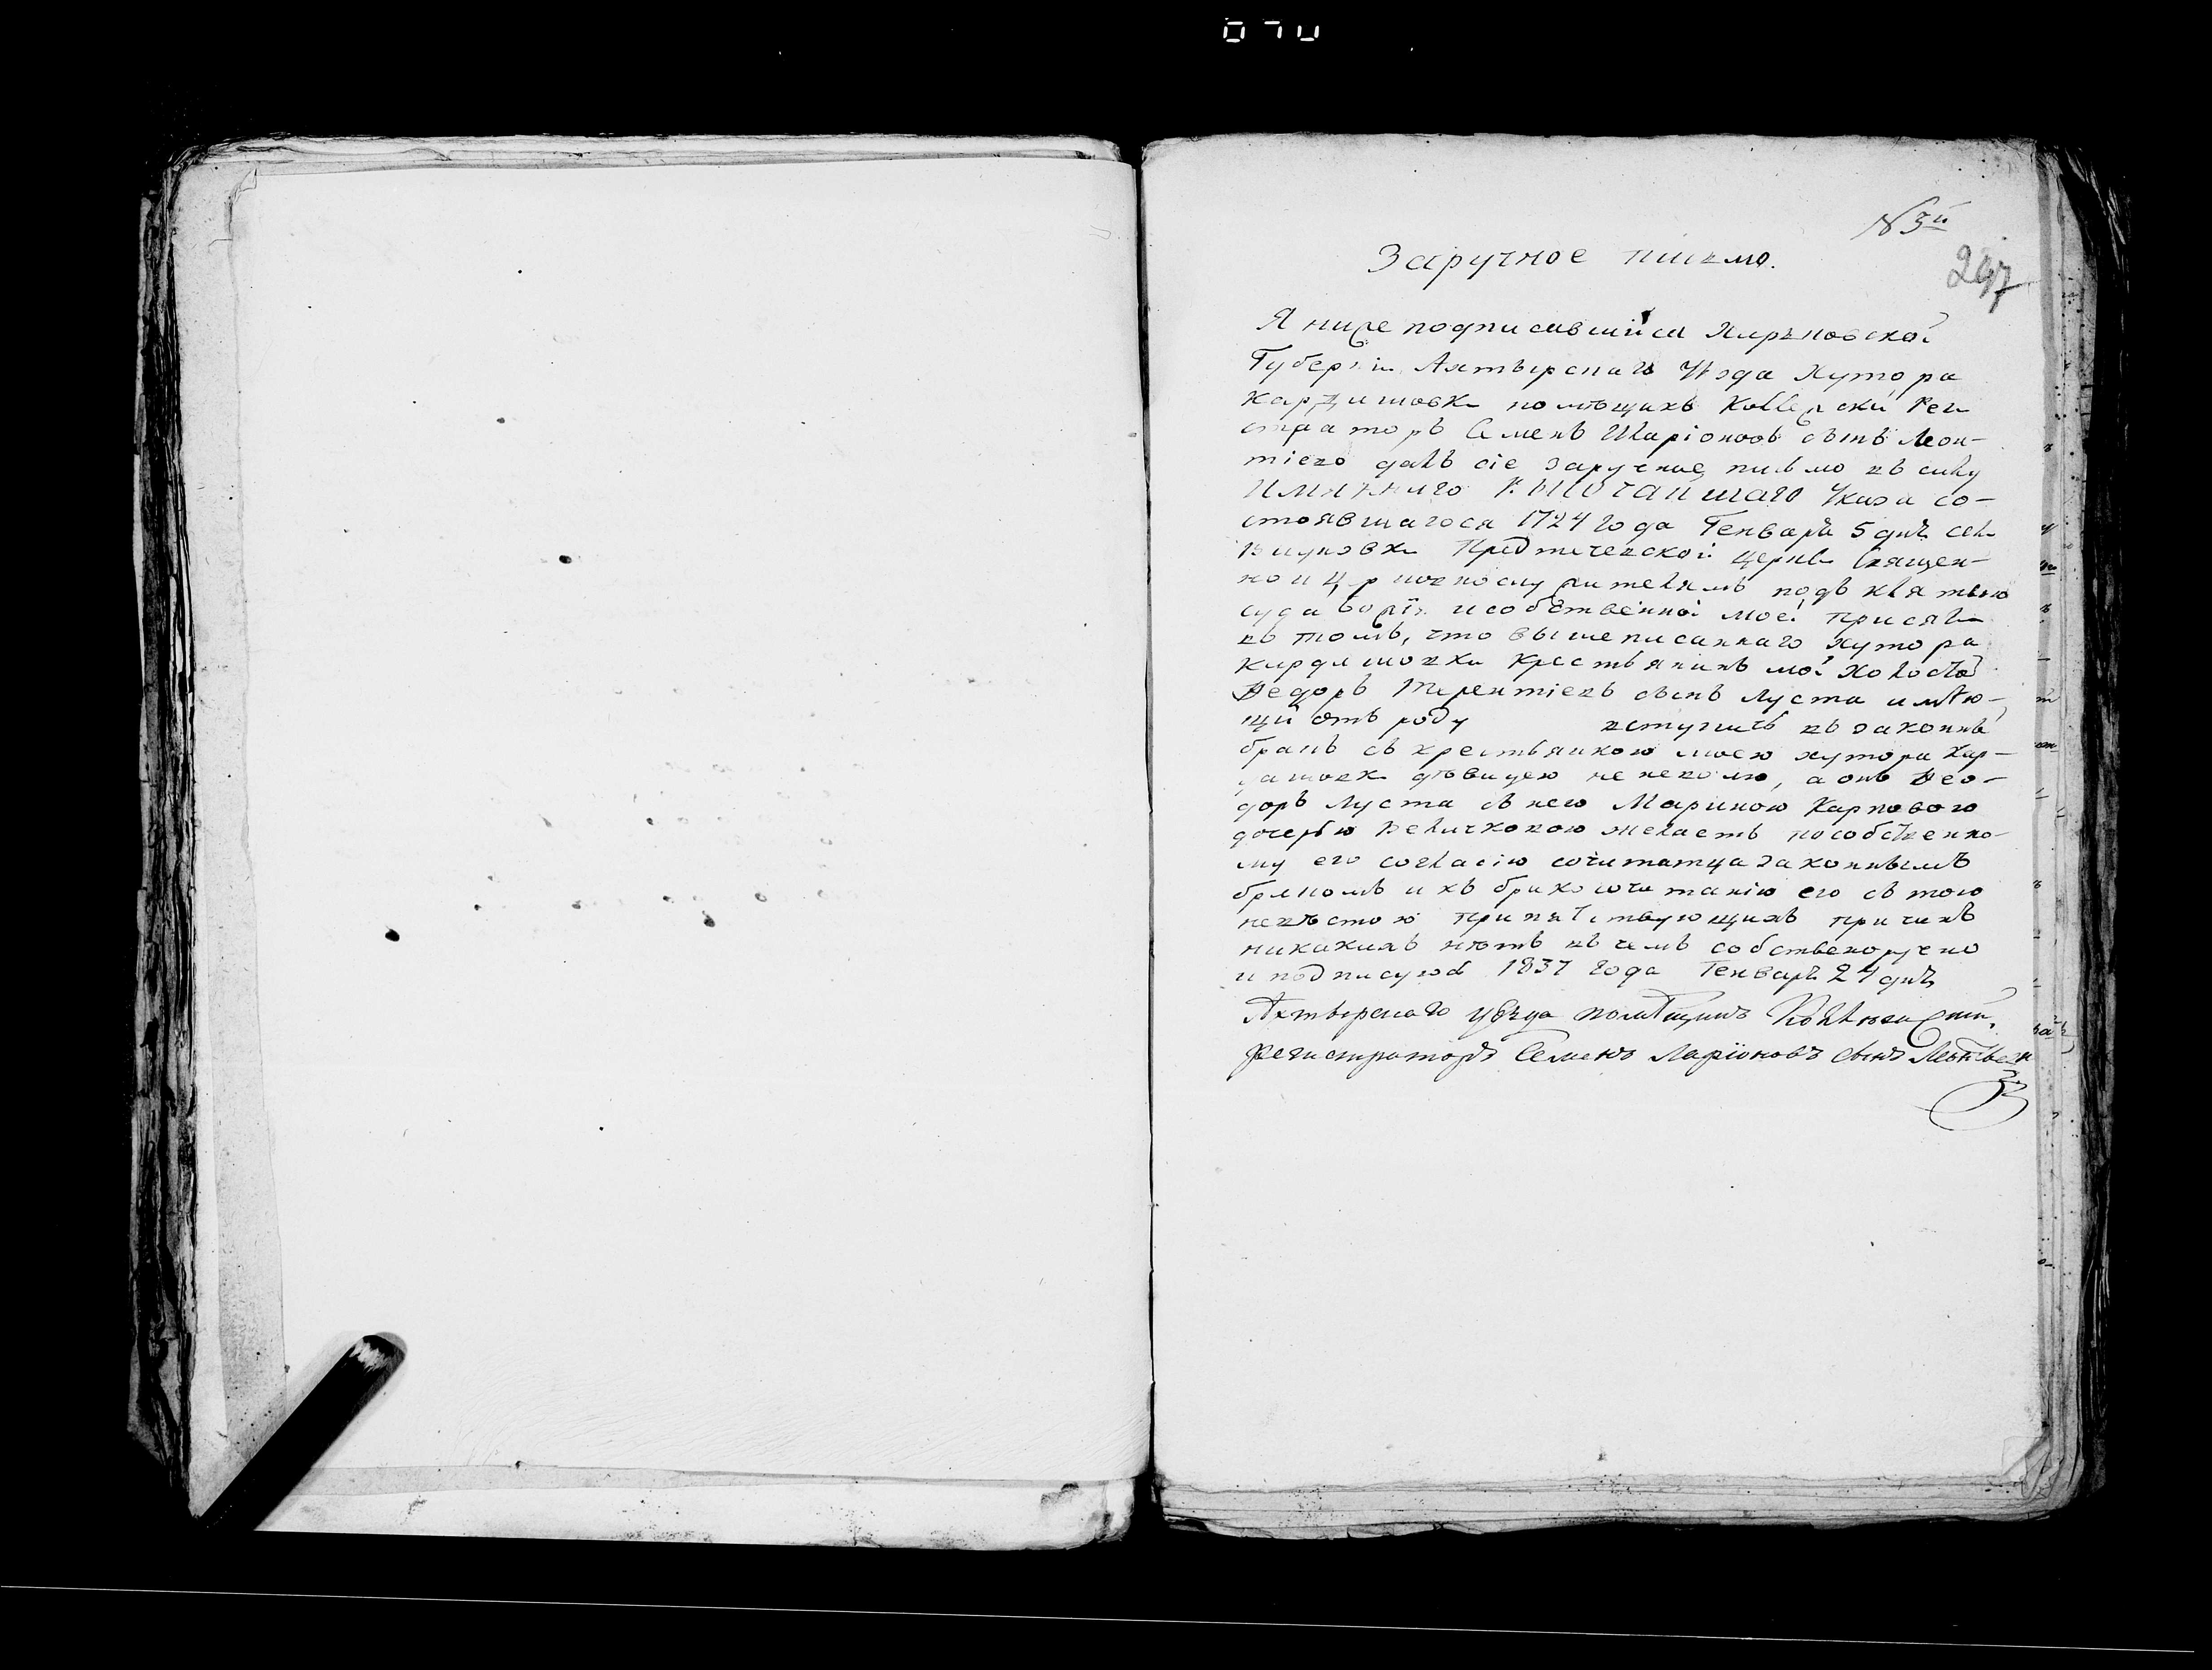 070
N 3й
297
Заручное писмо.
Я ниже подписавшийся Харьковской
Губерніи Ахтырскаго Уѣзда Хутора
Кардашовки помѣщикъ Коллежскій Реги
страторъ Семенъ Иларіоновъ сынъ Леон-
тіево далъ сіе заручное письмо въ силу
Имяннаго Высочайшаго Указа со-
стоявшагося 1724 года Генваря 5 дня села
Предтеческой церкви Священ-
но и церковнослужителямъ подъ клятвою
суда Божія и собственной моей присяги
въ томъ, что вышеписаннаго хутора
Кардашовки крестьянинъ мой Холостой
Ѳедоръ Терентіевъ сынъ Луста имѣю-
щій отъ роду вступить въ законный
бракъ съ крестьянкою моею хутора Кар-
дашовки дѣвицею не неволю, а онъ Ѳео-
доръ Луста съ нею Мариною Карповою
дочерью Величковою желаетъ по собственно-
му его согласію сочитатца законнымъ
бракомъ и къ бракосочитанію его съ тою
невѣстою припятствующихъ причинъ
никакихъ нѣтъ въ чемъ собственоручно
и подписуюсь 1837 года Генваря 24 дня
Ахтырскаго уѣзда помѣщикъ Коллежскій
регистраторъ Семенъ Ларіоновъ сынъ Леонтьевъ